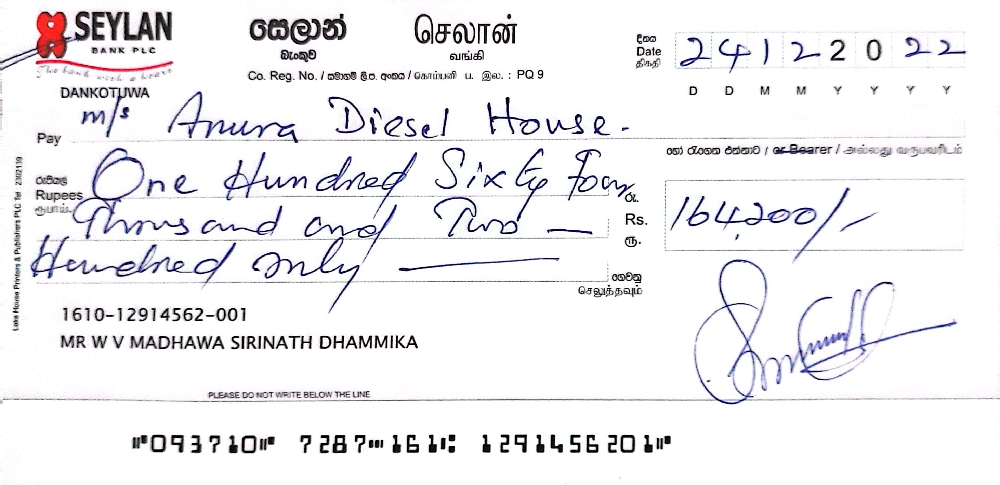 SEYLAN
BANK PLC
The bank with a heart
DANKOTUWA
සෙලාන්
බැංකුව
செலான்
வங்கி
Co. Reg. No. / සමාගම් ලි.ප. අංකය / கொம்பனி ப. இல. : PQ 9
දිනය
Date
திகதி
24122022
D D M M Y Y Y Y
Pay m/s Anura Diesel House.
හෝ රැගෙන එන්නාට / or Bearer / அல்லது வருபவரிடம்
රුපියල්
Rupees
ரூபாய்
One Hundred Sixty Four
Thousand and Two
Hundred only
රු.
Rs.
ரூ.
164,200/-
ගෙවනු
செலுத்தவும்
1610-12914562-001
MR W V MADHAWA SIRINATH DHAMMIKA
PLEASE DO NOT WRITE BELOW THE LINE
Lake House Printers & Publishers PLC Tel 2302139
⑈093710⑈ 7287⑉161⑆ 1291456201⑈